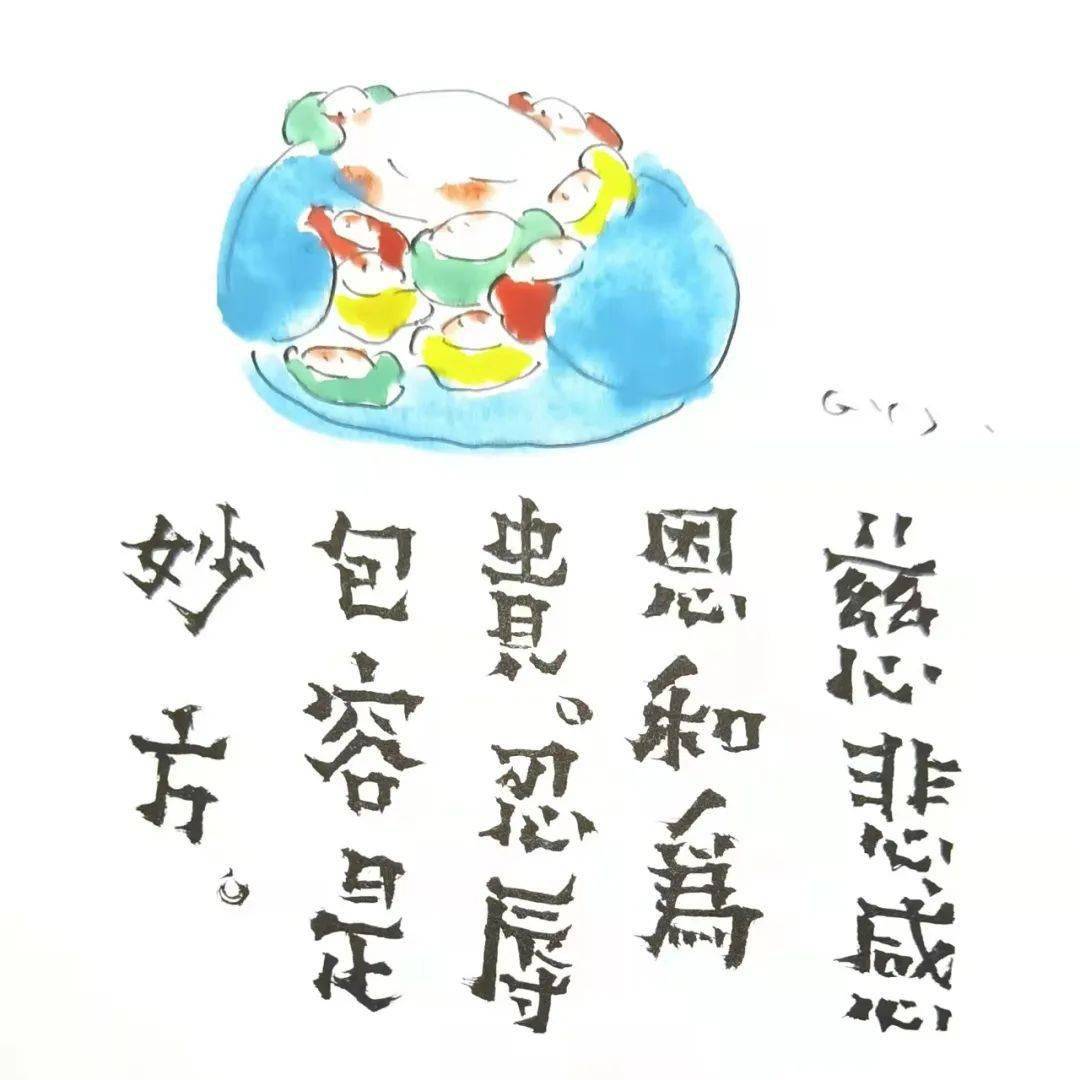 慈悲感
恩和為
貴。忍辱
包容是
妙方。